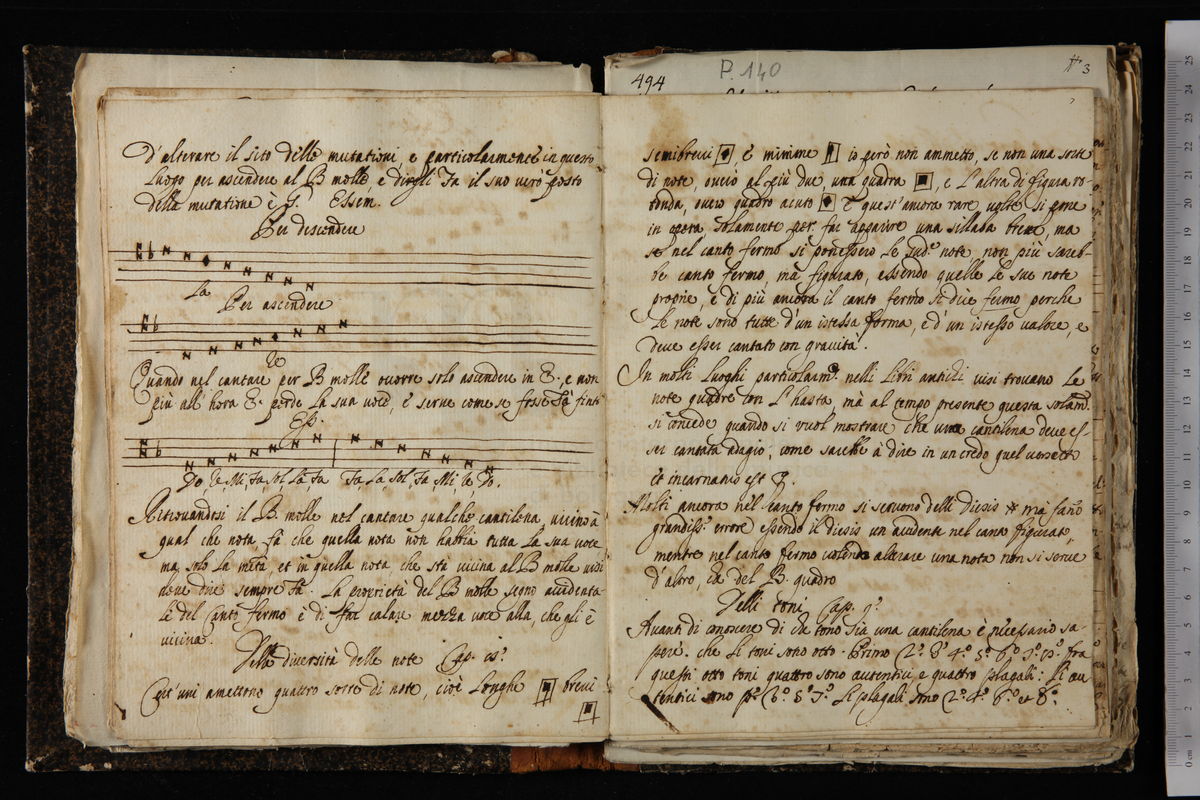 d'alterare il sito delle mutationi, e particolarmente in questo
luogo per ascendere al B molle, e dirgli Fa il suo vero posto
della mutatione è G. Essem.
Per descendere
La
Per ascendere
Re
Quando nel cantare per B molle ocorre solo ascendere in E., e non
più all'hora E. perde la sua voce, e serve come se fosse Fa finto
Ess.
Do Re Mi, Fa, Sol, La, Fa Fa, La, Sol, Fa, Mi, Re, Do.
Ritrovandosi il B molle nel cantare qualche cantilena, vicino à
qual che nota fà che quella nota non habbia tutta la sua voce
ma solo la metà, et in quella nota che stà vicina al B molle
deve dire sempre Fa. La proprietà del B molle segno accidenta-
le del Canto fermo è di far calare mezza voce alla, che gli è
vicina.
Della diversità delle note Cap.
Cert'uni amettono quattro sorte di note, cioè Longhe brevi
494
P. 140
3
semibrevi, e minime io però non ammetto, se non una sorte
di note, overo al più due, una quadra, e l'altra di figura ro-
tonda, overo quadro acuto E quest'ancora rare volte si pone
in opera solamente per far apparire una sillaba breve, ma
se nel canto fermo si ponessero le sud.e note non più sareb-
be canto fermo mà figurato, essendo quelle le sue note
proprie, e di più ancora il canto fermo si dice fermo perche
le note sono tutte d'un istessa forma, e d'un istesso valore, e
deve esser cantato con gravità.
In molti luoghi particolarm.e nelli libri antichi visi trovano le
note quadre con l'hasta mà al tempo presente questa solam.
si concede quando si vuol mostrare che una cantilena deve es-
ser cantata adagio; come sarebbe à dire in un credo quel versetto
et incarnatus est
Molti ancora nel Canto fermo si servono delli Diesis mà fano
grandiss.o errore essendo il diesis un accidente nel canto figurato,
mentre nel canto fermo volendo alterare una nota non si serve
d'altro, che del B. quadro
Delli toni Cap. 9.o
Avanti di conoscere di che tono sia una cantilena è necessario sa-
pere, che li toni sono otto. Primo 2.o 3.o 4.o 5.o 6.o 7.o 8.o fra
questi otto toni quattro sono autentici, e quattro plagali: li au
tentici sono p.o 3.o 5.o 7.o li plagali sono 2.o 4.o 6.o et 8.o